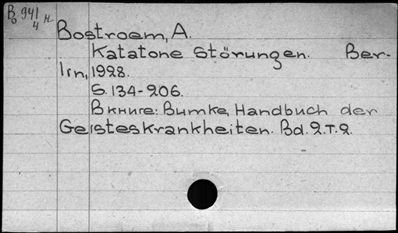 B 941
о 4 н.
Bostroem, A.
Katatone Störungen. Ber-
lin, 1928.
S. 134-206.
В книге: Bumke, Handbuch der
Geisteskrankheiten. Bd. 2. T. 2.